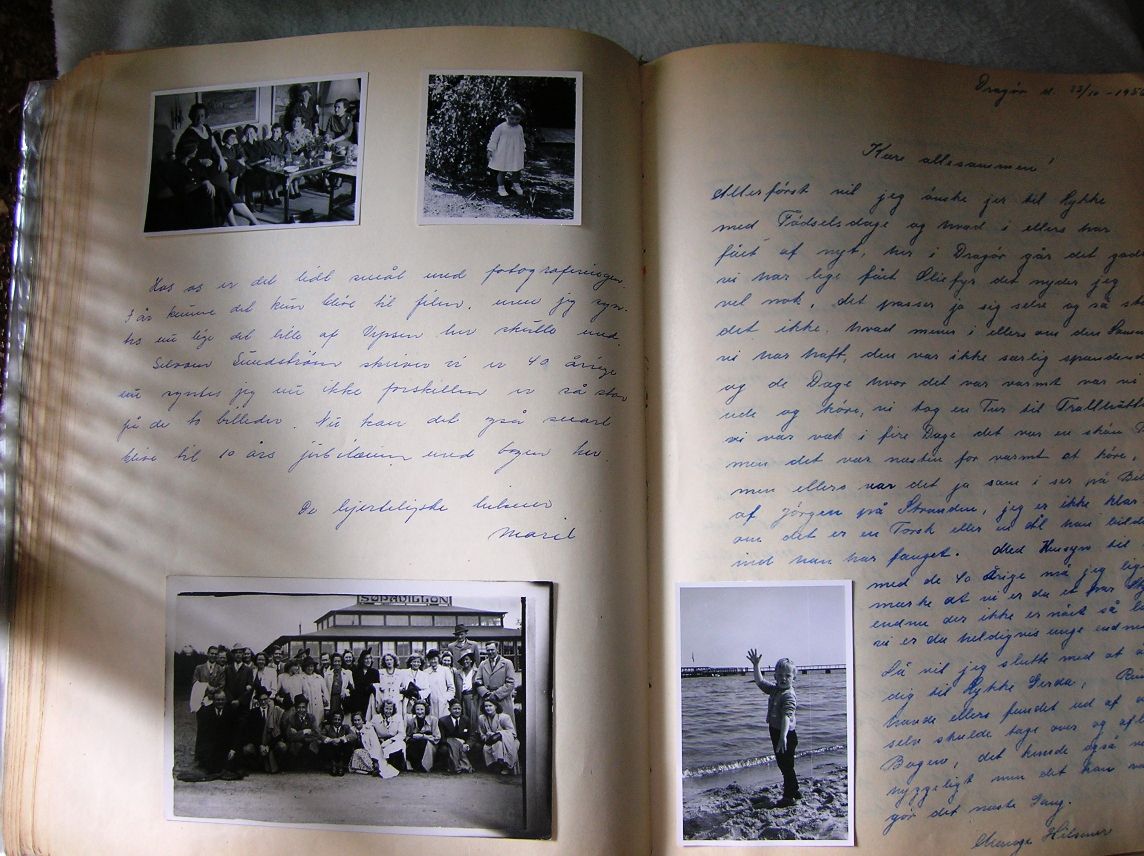 Hos os er det lidt småt med fotograferingen.
I år kunne det kun blive til film, men jeg syn-
tes nu lige det lille af Vipsen her skulle med.
Sundström skriver vi er 40 årige
nu syntes jeg nu ikke forskellen er så stor
på de to billeder. Nu kan det også snart
blive til 10 års jubilæum med bogen her.
De hjerteligste hilsner
Marit
SØPAVILLON
Dragør d. 1956
Kære allesammen!
Allerførst vil jeg önske jer til Lykke
med Födselsdage og hvad i ellers har
fået af nyt, her i Dragør går det godt
vi har lige fået Oliefyr det nyder jeg
vel nok, det passer ja sig selv og så
det ikke. Hvad mener i ellers om den
vi har haft, den var ikke særlig spændende
og de Dage hvor det var varmt var vi
ude og köre, vi tog en Tur til
vi var væk i fire Dage det var en skön
men det var næsten for varmt at köre,
men ellers var det ja som i ser på
af Jörgen på Stranden, jeg er ikke klar
om det er en Torsk eller en ål han
ind han har fanget. Med Hensyn til
med de 40 årige må jeg
maske at vi er da et par
endnu der ikke er nået så
vi er da heldigvis unge endnu
Så vil jeg slutte med at
dig til Lykke Gerda,
havde ellers fundet ud af
selv skulde tage over og af
Bogen, det kunde også
hyggeligt men det kan
gör det næste Gang.
Mange Hilsner